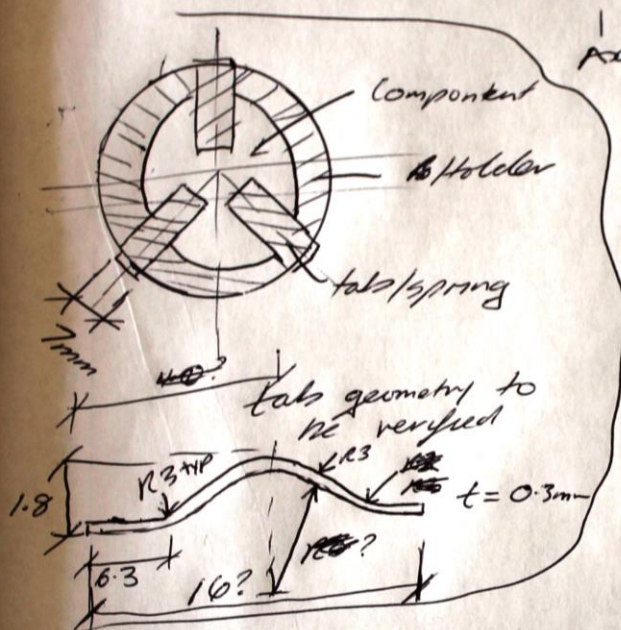 Component
Holder
tab/spring
7mm
?
tab geometry to
be verified
R3 TYP
R3
1.8
t = 0.3mm
?
6.3
16?